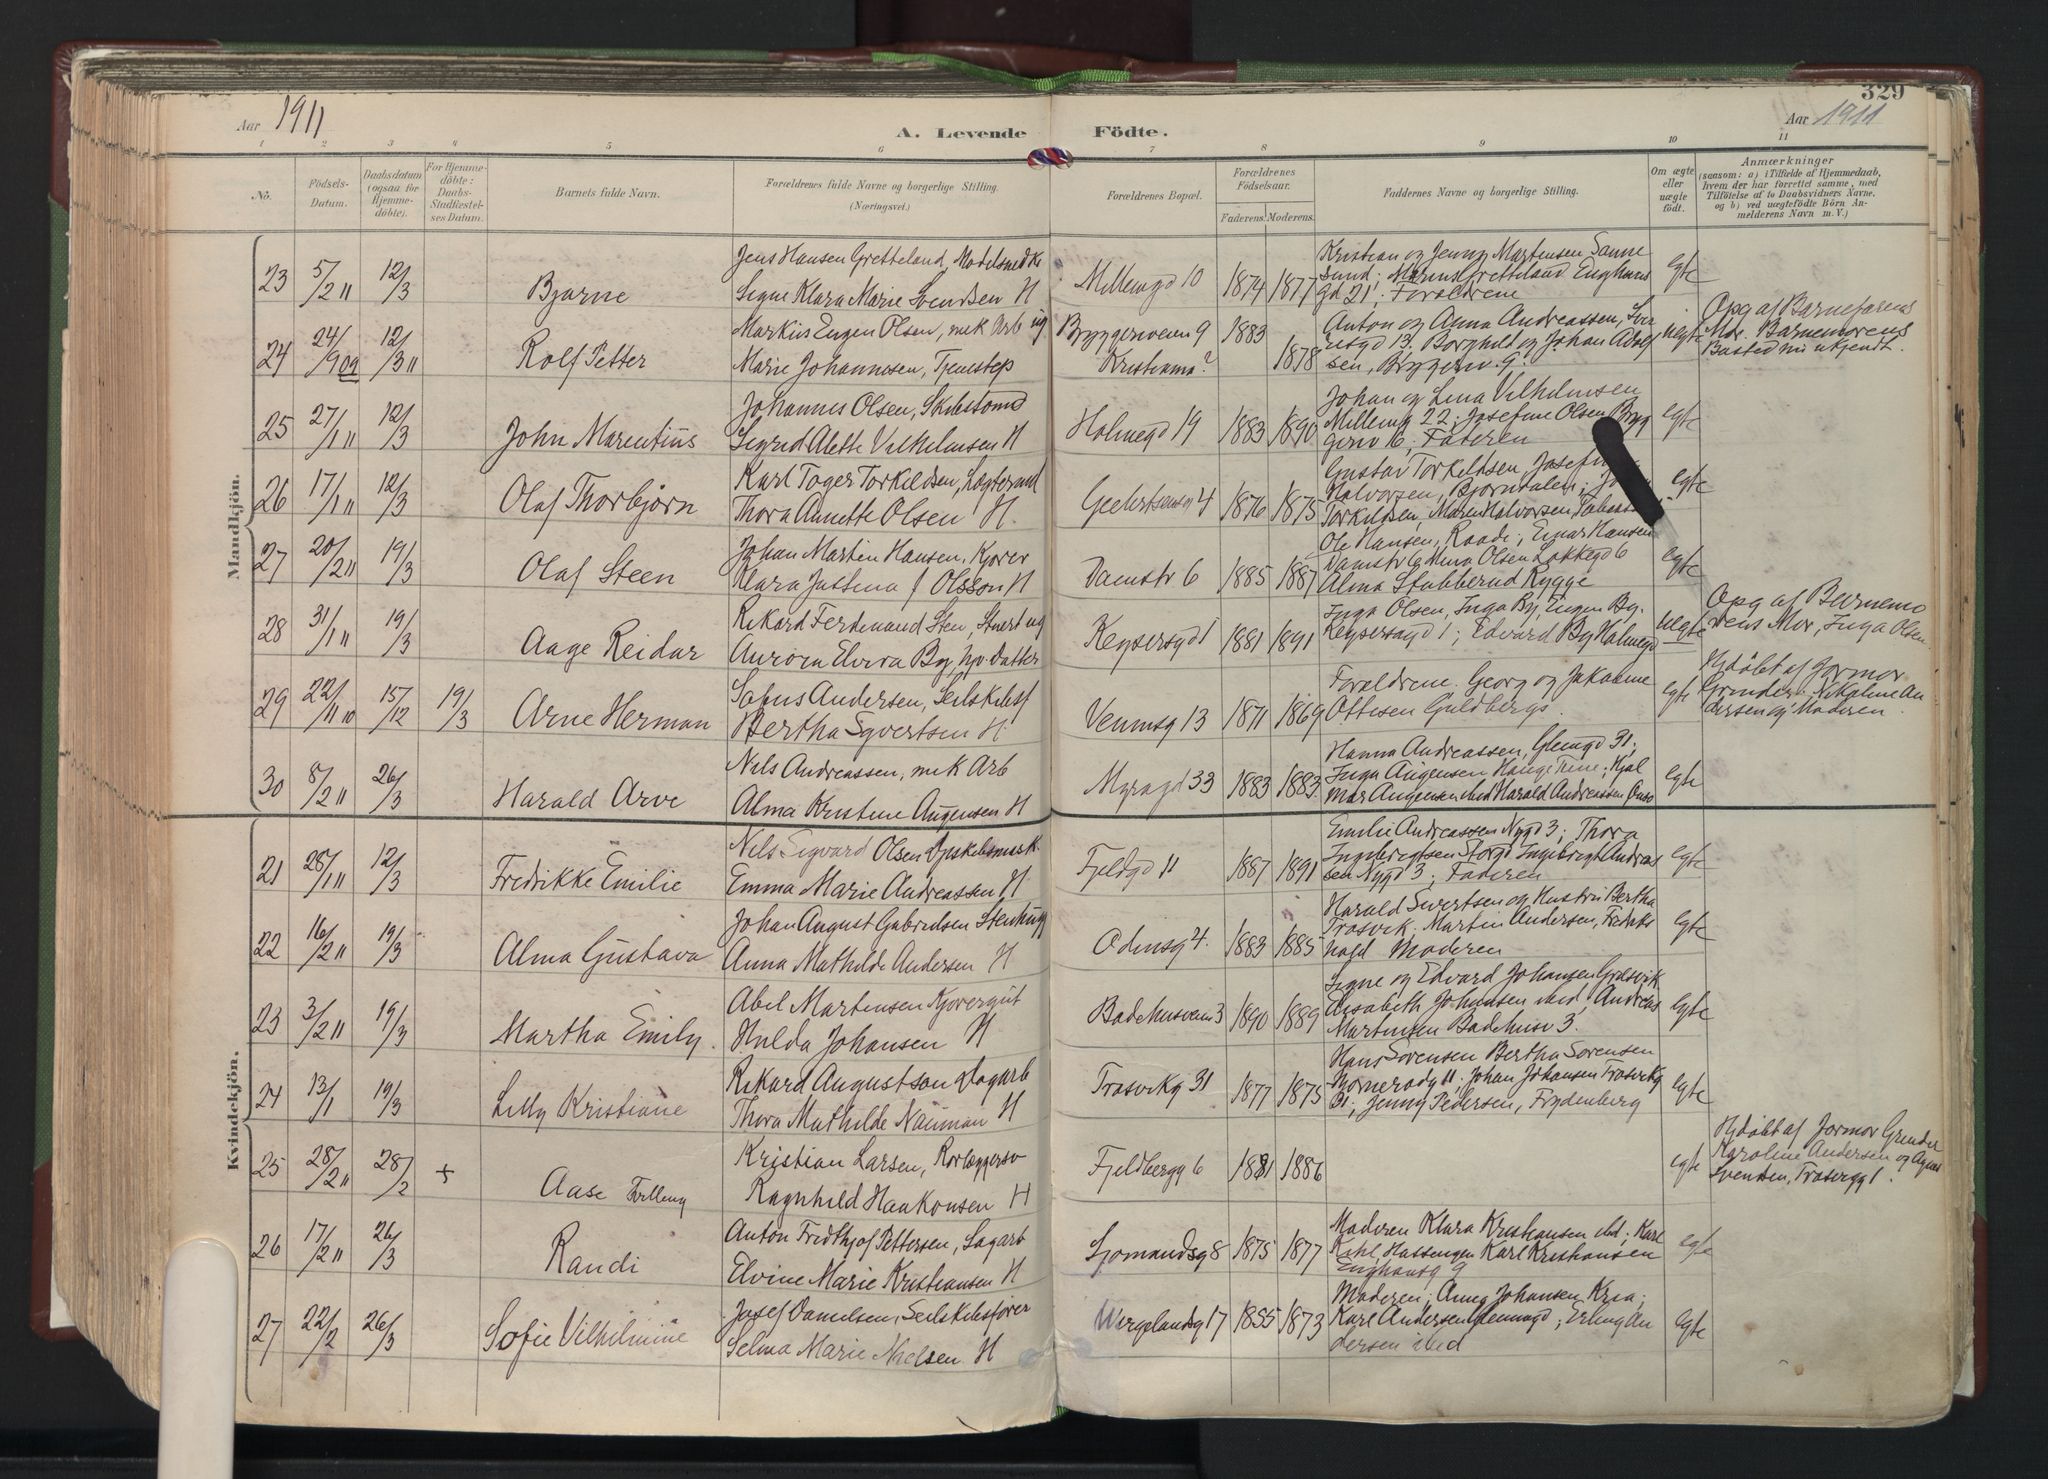 329
Aar 1911
A. Levende Födte.
Aar 1911
1 2 3 4 5 6 7 8 9 10 11
No.
Födsels-Datum.
Daabsdatum (ogsaa for Hjemme-döbte).
For Hjemme-döbte: Daabs-Stadfæstel-ses Datum.
Barnets fulde Navn.
Forældrenes fulde Navne og borgerlige Stilling.
(Næringsvei.)
Forældrenes Bopæl.
Forældrenes Födselsaar.
Faderens. Moderens.
Faddernes Navne og borgerlige Stilling.
Om ægte eller uægte født.
Anmærkninger
(saasom: a) i Tilfælde af Hjemmedaab, hvem der har forrettet samme, med Tilföielse af to Daabsvidners Navne. og b) ved uægtefödte Börn Anmelderens Navn m. V.)
Mandkjön.
23 5/2 11 12/3 Bjarne
Jens Hansen Gretteland,
Signe Klara Marie Svendsen H
Millemgd 10 1874 1877
Kristian og Jenny Martensen Sanne
sund; Marius Gretteland Enghaus
gd 21; Forældrene
egte
24 24/9 09 12/3 11 Rolf Petter
Markus Eugen Olsen, mek Arb ug
Marie Johannesen, Tjenestep
Bryggeriveien 9 1883
Kristiania? 1878
Anton og Anna Andreassen,
13; Borghild og Johan Adolf
sen, Bryggeriv. 9
uegte
Opg af Barnefarens
Mor. Barnemorens
Bosted nu ukjendt.
25 27/1 11 12/3 John Marentius
Johannes Olsen,
Sigrid Alette Vilhelmsen H
Holmegd 19 1883 1890
Johan og Lina Vilhelmsen
Millemg 22; Josefine Olsen Bryg
geriv 16; Faderen
egte
26 17/1 11 12/3 Olaf Thorbjørn
Karl Toger Torkildsen,
Thora Annette Olsen H.
Geelertsensg 4 1876 1875
Gustav Torkildsen,
Halvorsen, Bjørndalen;
Torkildsen, Maren Halvorsen
egte
27 20/2 11 19/3 Olaf Steen
Johan Martin Hansen, Kjører
Klara Justina f Olsson H
Damstr 6 1885 1887
Ole Hansen, Raade; Einar Hansen
Damstr 6 Olsen Løkkegd 6
Alma Stubberud Rygge
egte
28 31/1 11 19/3 Aage Reidar
Rikard Ferdinand Sten, Stuert ug
Aurora Elvira By, hjv. Datter
Keysersgd 1 1881 1891
Inga Olsen, Inga By, Eugen By,
Keysersgd 1; Edvard By Holmegd
uegte
Opg af Barnemo
rens Mor, Inga Olsen
29 22/11 10 15/12 19/3 Arne Herman
Sofus Andersen,
Bertha Syvertsen H
Venusg 13 1871 1869
Forældrene. Georg og Jakobine
Ottesen Guldbergs
egte
Hjdøbt af Jormor
Grinder; Nikoline An
dersen og Moderen.
30 8/2 11 26/3 Harald Arve
Nils Andreassen, mek Arb
Alma Kristine Augensen H
Myragd 33 1883 1883
Hanna Andreassen, Glemgd 31;
Inga Augensen Hauge Tune; Hjal
mar Augensen ibid Harald Andreassen Onsø
egte
Kvindekjön.
21 28/1 11 12/3 Fredrikke Emilie
Nils Sigvard Olsen
Emma Marie Andreassen H
Fjeldgd 11 1887 1891
Emilie Andreassen Nygd 3; Thora
Ingebrigtsen Storgd Ingebrigt Andreas
sen Nygd 3; Faderen
egte
22 16/2 11 19/3 Alma Gustava
Johan August Gabrielsen Stenhugg
Anna Mathilde Andersen H
Odinsg 4. 1883 1885
Harald Sivertsen og Hustru Bertha
Trosvik; Martin Andersen, Fredriks
hald Moderen
egte
23 3/2 11 19/3 Martha Emily
Abel Martensen Kjøregut
Hulda Johansen H
Badehusveien 3 1890 1889
Signe og Edvard Johansen Gresvik
Elisabeth Johansen ibid, Andreas
Martensen Badehusv 3.
egte
24 13/1 19/3 Lilly Kristiane
Rikard Augustson Dagarb
Thora Mathilde Nauman H
Trosvikg 31 1877 1875
Hans Sørensen Bertha Sørensen
11; Johan Johansen Trosvikg
31; Jenny Pedersen, Frydenberg
egte
25 28/2 11 28/2 + Aase Tvilling
Kristian Larsen, Rørlæggersv
Ragnhild Haakonsen H
Fjeldbergg 6 1881 1886
egte
Hjdøbt af Jormor Grinder
Karoline Andersen og Agnes
Svendsen, Trosergg 1.
26 17/2 11 26/3 Randi
Anton Fridthjof Pettersen, Sagarb
Elvine Marie Kristiansen H
Sjømandsg 8 1875 1877
Moderen Klara Kristiansen ibd; Karl
Karl Kristiansen
Enghausg 9
egte
27 22/2 26/3 Sofie Vilhelmine
Josef Danielsen, Seilskibsfører
Selma Marie Nielsen H
Wergelandsg 17 1855 1873
Moderen; Anna Johansen Kria;
Karl Andersen Glemmegd; Erling An
dersen ibid
egte